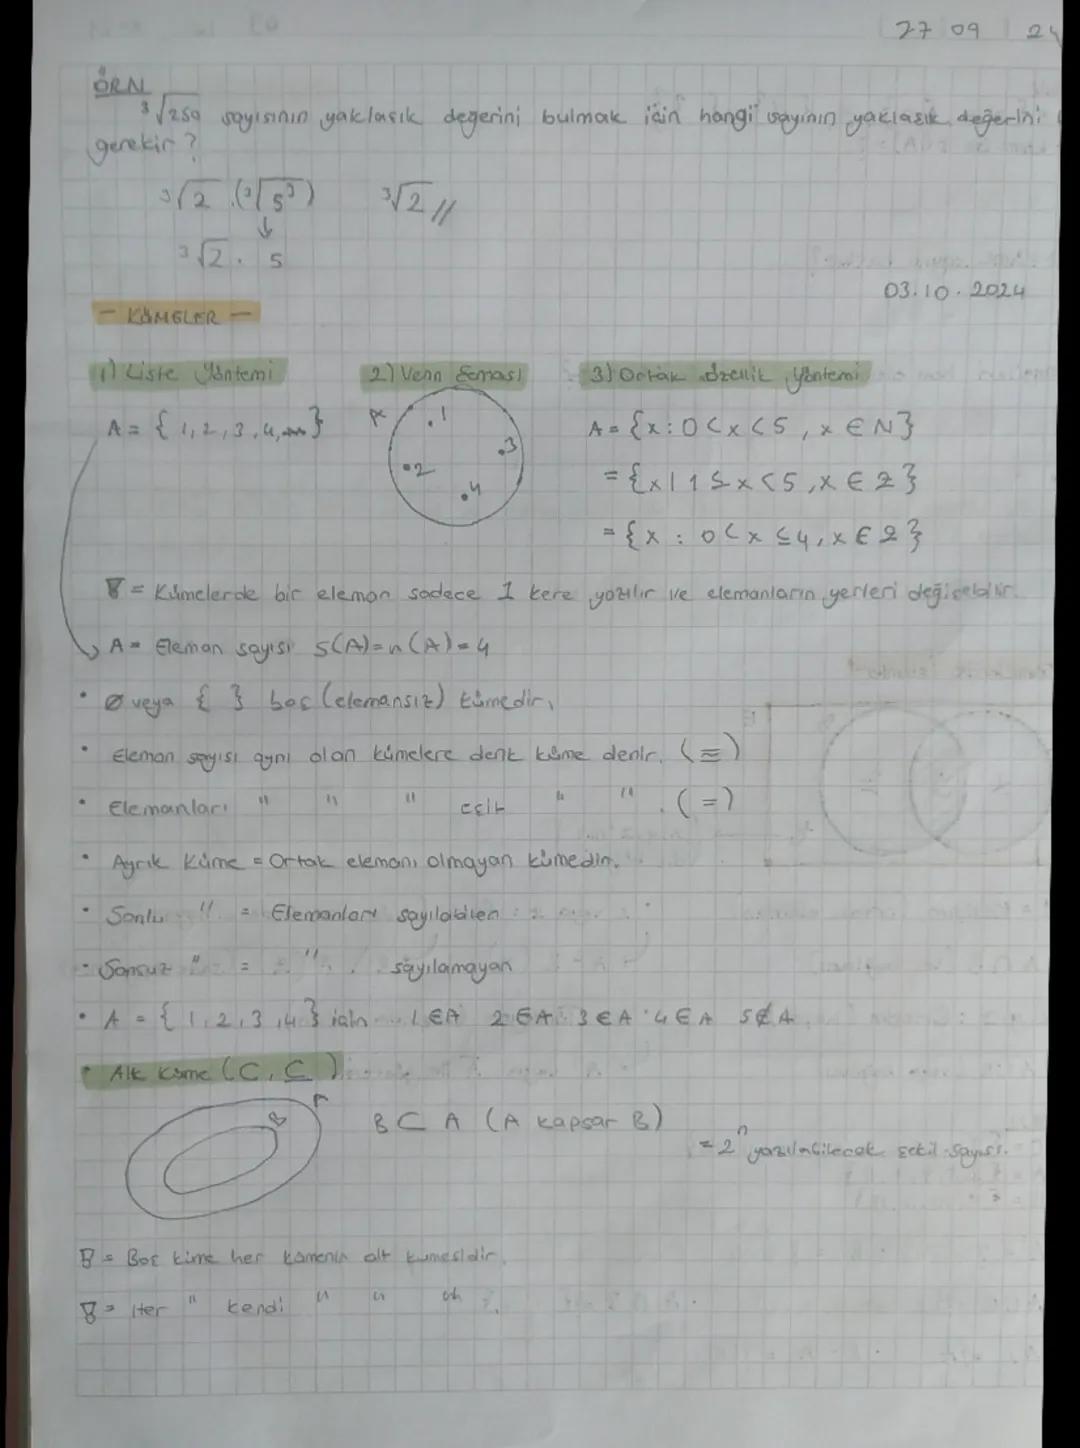 27 09 24
ÖRN
³√250 sayısının yaklaşık değerini bulmak için hangi sayının yaklaşık değerini
gerekir?
³√2 . (³√5³) ³√2 //
↓
³√2 . 5
03.10.2024
- KÜMELER -
1) Liste Yöntemi 2) Venn Şeması 3) Ortak Özellik Yöntemi
A = { 1, 2, 3, 4, } A .1 .2 .3 .4 A = {x : 0 < x < 5 , x ∈ N}
= {x | 1 ≤ x < 5 , x ∈ Z}
= {x : 0 < x ≤ 4, x ∈ Z}
= Kümelerde bir eleman sadece 1 kere yazılır ve elemanların yerleri değişebilir.
A = Eleman sayısı s(A) = n(A) = 4
• Ø veya { } boş (elemansız) kümedir.
• Eleman sayısı aynı olan kümelere denk küme denir. (≡)
• Elemanları " " " eşit " " . (=)
• Ayrık Küme = Ortak elemanı olmayan kümedir.
• Sonlu " = Elemanları sayılabilen
• Sonsuz " = " sayılamayan
• A = { 1, 2, 3, 4 } için 1 ∈ A 2 ∈ A 3 ∈ A 4 ∈ A 5 ∉ A
• Alt Küme (⊂, ⊆)
A B B ⊂ A (A kapsar B)
= 2ⁿ yazılabilecek şekil sayısı.
= Boş küme her kümenin alt kümesidir.
= Her " kendi " " "